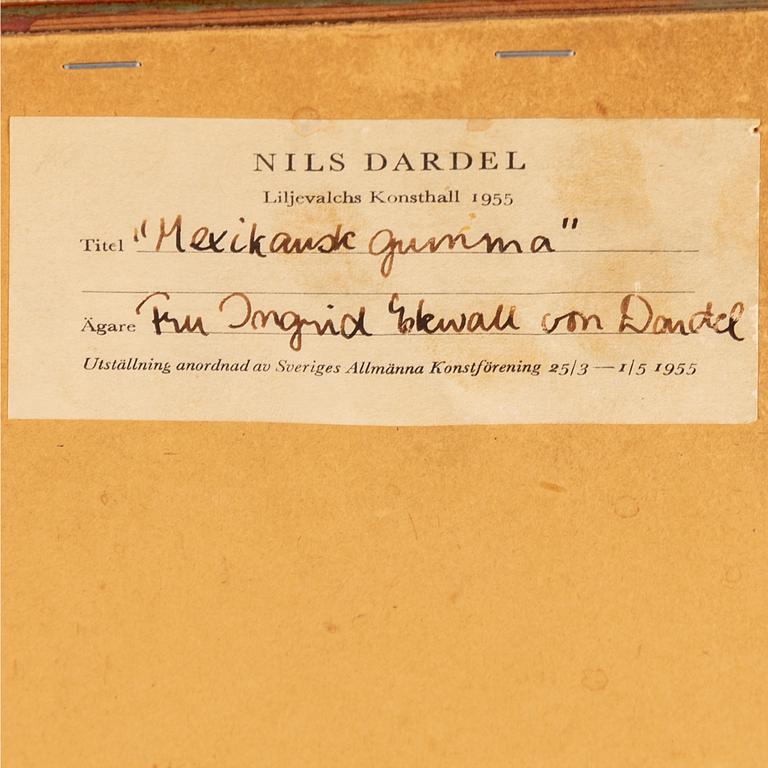 NILS DARDEL
Liljevalchs Konsthall 1955
Titel "Mexikansk gumma"
Ägare Fru Ingrid Ekwall von Dardel
Utställning anordnad av Sveriges Allmänna Konstförening 25/3 — 1/5 1955